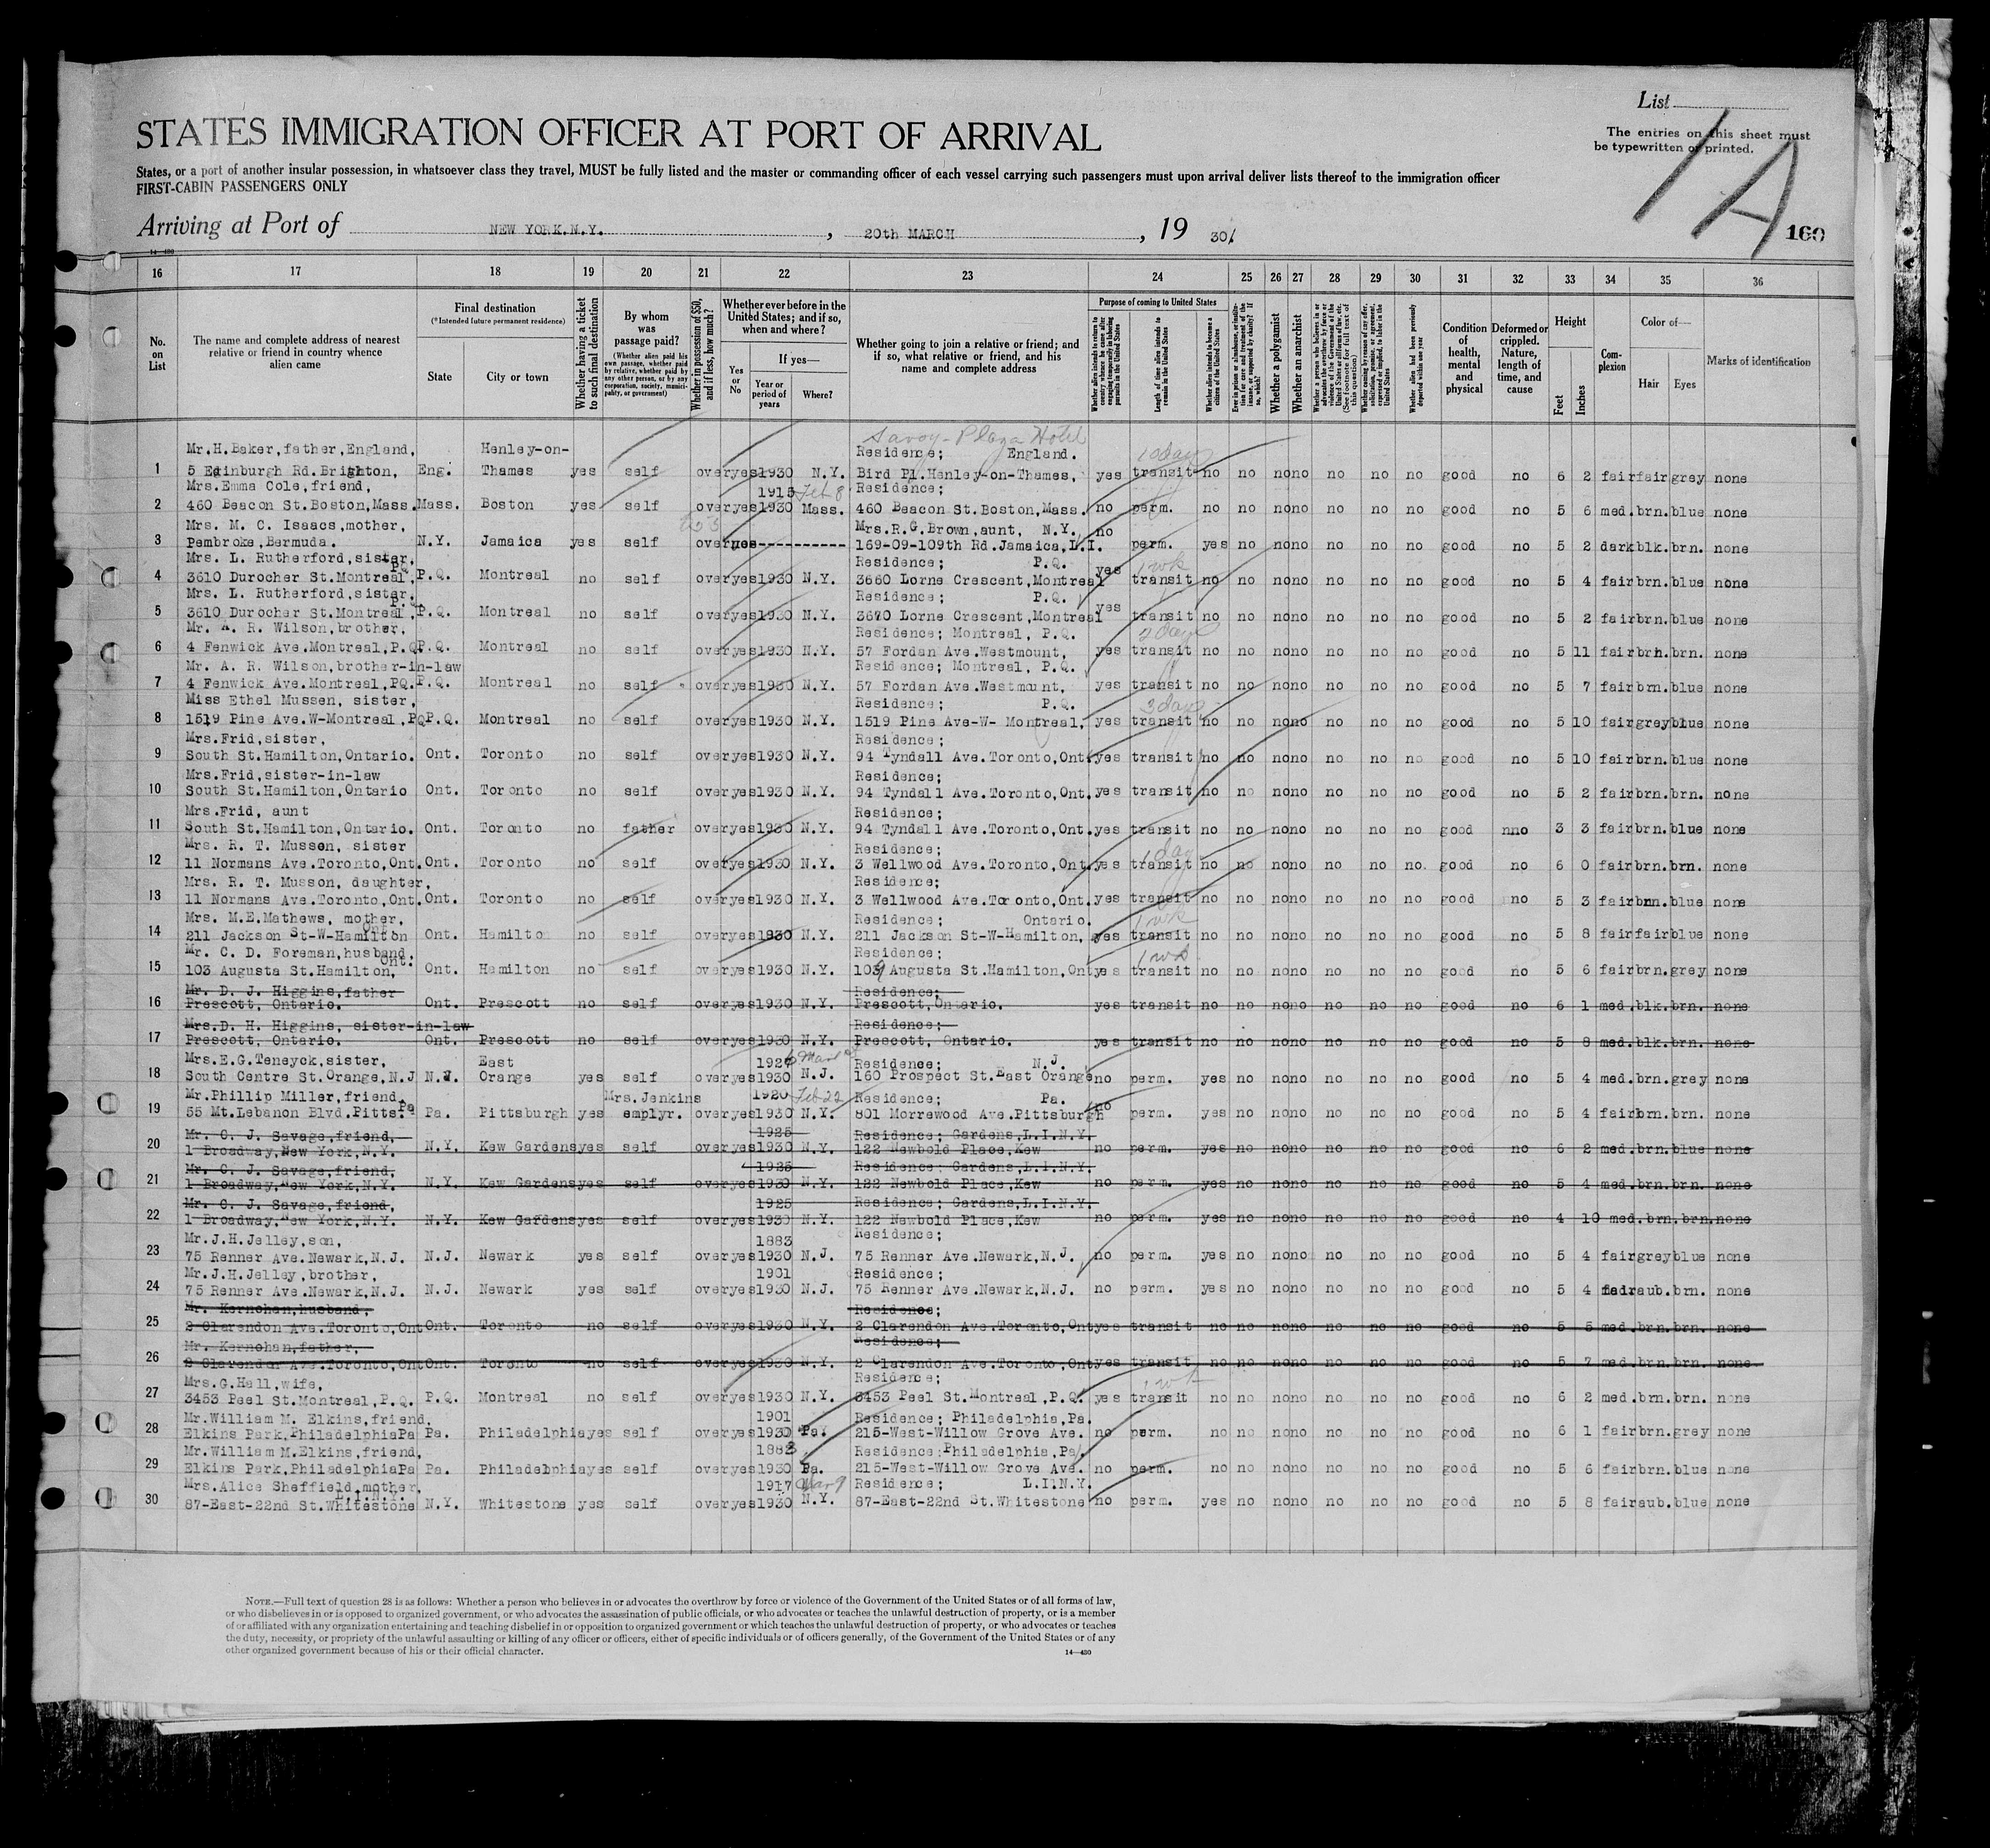 List
STATES IMMIGRATION OFFICER AT PORT OF ARRIVAL
The entries on this sheet must
be typewritten or printed.
1A
States, or a port of another insular possession, in whatsoever class they travel, MUST be fully listed and the master or commanding officer of each vessel carrying such passengers must upon arrival deliver lists thereof to the immigration officer
FIRST-CABIN PASSENGERS ONLY
Arriving at Port of NEW YORK.N.Y. , 20th MARCH , 19 30
160
14-430
16 17 18 19 20 21 22 23 24 25 26 27 28 29 30 31 32 33 34 35 36
No. on List
The name and complete address of nearest relative or friend in country whence alien came
Final destination
(*Intended future permanent residence)
State
City or town
Whether having a ticket to such final destination
By whom was passage paid?
(Whether alien paid his own passage, whether paid by relative, whether paid by any other person, or by any corporation, society, municipality, or government)
Whether in possession of $50, and if less, how much?
Whether ever before in the United States; and if so, when and where?
Yes or No
If yes—
Year or period of years
Where?
Whether going to join a relative or friend; and if so, what relative or friend, and his name and complete address
Purpose of coming to United States
Whether alien intends to return to country whence he came after engaging temporarily in laboring pursuits in the United States
Length of time alien intends to remain in the United States
Whether alien intends to become a citizen of the United States
Whether a polygamist
Whether an anarchist
Whether alien had been previously deported within one year
Condition of health, mental and physical
Deformed or crippled. Nature, length of time, and cause
Height
Feet
Inches
Complexion
Color of—
Hair
Eyes
Marks of identification
Savoy-Plaza Hotel
Mr.H.Baker,father,England, Henley-on- Residence; England. 1 day
1 5 Edinburgh Rd.Brighton, Eng. Thames yes self over yes 1930 N.Y. Bird Pl.Henley-on-Thames, yes transit no no no no no no no good no 6 2 fair fair grey none
Mrs.Emma Cole,friend, 1915 Feb 8 Residence;
2 460 Beacon St.Boston,Mass. Mass. Boston yes self over yes 1930 Mass. 460 Beacon St.Boston,Mass. no perm. no no no no no no no good no 5 6 med. brn. blue none
Mrs. M. C. Isaacs,mother, Mrs.R.G.Brown,aunt, N.Y.
3 Pembroke,Bermuda. N.Y. Jamaica yes self over 169-09-109th Rd.Jamaica,L.I. no perm. yes no no no no no no good no 5 2 dark blk. brn. none
Mrs. L. Rutherford,sister, Residence; P.Q. 1 wk
4 3610 Durocher St.Montreal, P.Q. P.Q. Montreal no self over yes 1930 N.Y. 3660 Lorne Crescent,Montreal yes transit no no no no no no no good no 5 4 fair brn. blue none
Mrs. L. Rutherford,sister, Residence; P.Q.
5 3610 Durocher St.Montreal, P.Q. P.Q. Montreal no self over yes 1930 N.Y. 3670 Lorne Crescent,Montreal yes transit no no no no no no no good no 5 2 fair brn. blue none
Mr. A. R. Wilson,brother, Residence; Montreal, P.Q. 2 days
6 4 Fenwick Ave.Montreal,P.Q. P.Q. Montreal no self over yes 1930 N.Y. 57 Fordan Ave.Westmount, yes transit no no no no no no no good no 5 11 fair brn. brn. none
Mr. A. R. Wilson,brother-in-law Residence; Montreal, P.Q.
7 4 Fenwick Ave.Montreal,PQ. P.Q. Montreal no self over yes 1930 N.Y. 57 Fordan Ave.Westmount, yes transit no no no no no no no good no 5 7 fair brn. blue none
Miss Ethel Mussen, sister, Residence; P.Q. 3 days
8 1519 Pine Ave.W-Montreal,PQ P.Q. Montreal no self over yes 1930 N.Y. 1519 Pine Ave-W- Montreal, yes transit no no no no no no no good no 5 10 fair grey blue none
Mrs.Frid,sister, Residence;
9 South St.Hamilton,Ontario. Ont. Toronto no self over yes 1930 N.Y. 94 Tyndall Ave.Toronto,Ont. yes transit no no no no no no no good no 5 10 fair brn. blue none
Mrs.Frid,sister-in-law Residence;
10 South St.Hamilton,Ontario Ont. Toronto no self over yes 1930 N.Y. 94 Tyndall Ave.Toronto,Ont. yes transit no no no no no no no good no 5 2 fair brn. brn. none
Mrs.Frid, aunt Residence;
11 South St.Hamilton,Ontario. Ont. Toronto no father over yes 1930 N.Y. 94 Tyndall Ave.Toronto,Ont. yes transit no no no no no no no good nno 3 3 fair brn. blue none
Mrs. R. T. Musson, sister Residence; 1 day
12 11 Normans Ave.Toronto,Ont. Ont. Toronto no self over yes 1930 N.Y. 3 Wellwood Ave.Toronto,Ont. yes transit no no no no no no no. good no 6 0 fair brn. brn. none
Mrs. R. T. Musson, daughter, Residence;
13 11 Normans Ave.Toronto,Ont. Ont. Toronto no self over yes 1930 N.Y. 3 Wellwood Ave.Toronto,Ont. yes transit no no no no no no no good no 5 3 fair brn. blue none
Mrs. M.E.Mathews, mother, Residence; Ontario. 1 wk
14 211 Jackson St-W-Hamilton Ont. Ont. Hamilton no self over yes 1930 N.Y. 211 Jackson St-W-Hamilton, yes transit no no no no no no no good no 5 8 fair fair blue none
Mr. C. D. Foreman,husband, Residence; 1 wk
15 103 Augusta St.Hamilton, Ont. Ont. Hamilton no self over yes 1930 N.Y. 109 Augusta St.Hamilton,Ont yes transit no no no no no no no good no 5 6 fair brn. grey none
Mr. D. J. Higgins,father Residence;
16 Prescott, Ontario. Ont. Prescott no self over yes 1930 N.Y. Prescott,Ontario. yes transit no no no no no no no good no 6 1 med. blk. brn. none
Mrs.D. H. Higgins, sister-in-law Residence;
17 Prescott, Ontario. Ont. Prescott no self over yes 1930 N.Y. Prescott, Ontario. yes transit no no no no no no no good no 5 8 med. blk. brn. none
Mrs.E.G.Teneyck,sister, East 1926 Residence; N.J.
18 South Centre St.Orange,N.J N.J. Orange yes self over yes 1930 N.J. 160 Prospect St.East Orange no perm. yes no no no no no no good no 5 4 med. brn. grey none
Mr.Phillip Miller,friend, Mrs.Jenkins 1920 Feb 22 Residence; Pa.
19 55 Mt.Lebanon Blvd.Pitts. Pa Pa. Pittsburgh yes emplyr. over yes 1930 N.Y. 801 Morrewood Ave.Pittsburgh no perm. yes no no no no no no good no 5 4 fair brn. brn. none
Mr. C. J. Savage,friend, 1925 Residence; Gardens,L.I.N.Y.
20 1 Broadway,New York,N.Y. N.Y. Kew Gardens yes self over yes 1930 N.Y. 122 Newbold Place,Kew no perm. yes no no no no no no good no 6 2 med. brn. blue none
Mr. C. J. Savage,friend, 1925 Residence; Gardens,L.I.N.Y.
21 1 Broadway,New York,N.Y. N.Y. Kew Gardens yes self over yes 1930 N.Y. 122 Newbold Place,Kew no perm. yes no no no no no no good no 5 4 med. brn. brn. none
Mr. C. J. Savage,friend, 1925 Residence; Gardens,L.I.N.Y.
22 1 Broadway,New York,N.Y. N.Y. Kew Gardens yes self over yes 1930 N.Y. 122 Newbold Place,Kew no perm. yes no no no no no no good no 4 10 med. brn. brn. none
Mr.J.H.Jelley,son, 1883 Residence;
23 75 Renner Ave.Newark,N.J. N.J. Newark yes self over yes 1930 N.J. 75 Renner Ave.Newark,N.J. no perm. yes no no no no no no good no 5 4 fair grey blue none
Mr.J.H.Jelley,brother, 1901 Residence;
24 75 Renner Ave.Newark,N.J. N.J. Newark yes self over yes 1930 N.J. 75 Renner Ave.Newark,N.J. no perm. yes no no no no no no good no 5 4 fair aub. brn. none
Mr. Kernohan,husband, Residence;
25 2 Clarendon Ave.Toronto,Ont Ont. Toronto no self over yes 1930 N.Y. 2 Clarendon Ave.Toronto,Ont yes transit no no no no no no no good no 5 5 med. brn. brn. none
Mr. Kernohan,father, Residence;
26 2 Clarendar Ave.Toronto,Ont Ont. Toronto no self over yes 1930 N.Y. 2 Clarendon Ave.Toronto,Ont yes transit no no no no no no no good no 5 7 med. brn. brn. none.
Mrs.G.Hall,wife, Residence; 1 wk
27 3453 Peel St.Montreal,P.Q. P.Q. Montreal no self over yes 1930 N.Y. 3453 Peel St.Montreal,P.Q. yes transit no no no no no no no good no 6 2 med. brn. brn. none
Mr.William M. Elkins,friend, 1901 Residence; Philadelphia,Pa.
28 Elkins Park,PhiladelphiaPa Pa. Philadelphia yes self over yes 1930 Pa. 215-West-Willow Grove Ave. no perm. no no no no no no no good no 6 1 fair brn. grey none
Mr.William M.Elkins,friend, 1883 Residence;Philadelphia,Pa.
29 Elkins Park,PhiladelphiaPa Pa. Philadelphia yes self over yes 1930 Pa. 215-West-Willow Grove Ave. no perm. no no no no no no no good no 5 6 fair brn. blue none
Mrs.Alice Sheffield,mother, 1917 Residence; L.I.N.Y.
30 87-East-22nd St.Whitestone N.Y. Whitestone yes self over yes 1930 N.Y. 87-East-22nd St.Whitestone no perm. yes no no no no no no good no 5 8 fair aub. blue none
NOTE.—Full text of question 28 is as follows: Whether a person who believes in or advocates the overthrow by force or violence of the Government of the United States or of all forms of law,
or who disbelieves in or is opposed to organized government, or who advocates the assassination of public officials, or who advocates or teaches the unlawful destruction of property, or is a member
of or affiliated with any organization entertaining and teaching disbelief in or opposition to organized government or which teaches the unlawful destruction of property, or who advocates or teaches
the duty, necessity, or propriety of the unlawful assaulting or killing of any officer or officers, either of specific individuals or of officers generally, of the Government of the United States or of any
other organized government because of his or their official character.
14-430